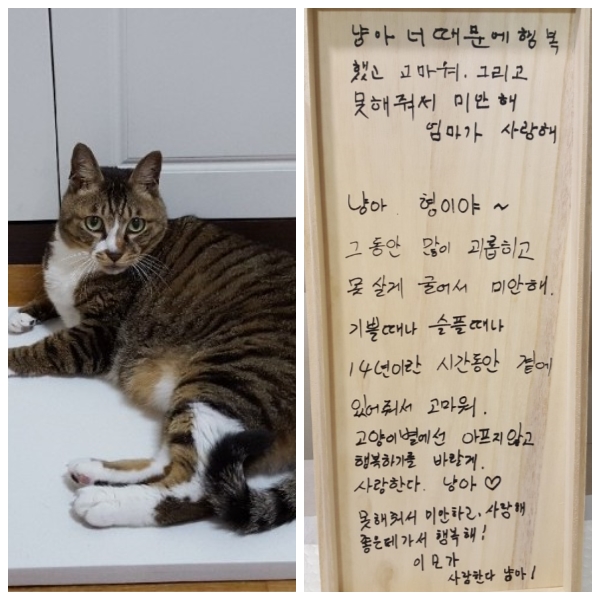 냥아 너 때문에 행복
했고 고마워. 그리고
못해줘서 미안해
엄마가 사랑해
냥아. 형이야 ~
그동안 많이 괴롭히고
못 살게 굴어서 미안해.
기쁠때나 슬플때나
14년이란 시간동안 곁에
있어줘서 고마워.
고양이별에선 아프지않고
행복하기를 바랄게.
사랑한다. 냥아 ♡
못해줘서 미안하고, 사랑해
좋은데가서 행복해!
이모가
사랑한다 냥아!